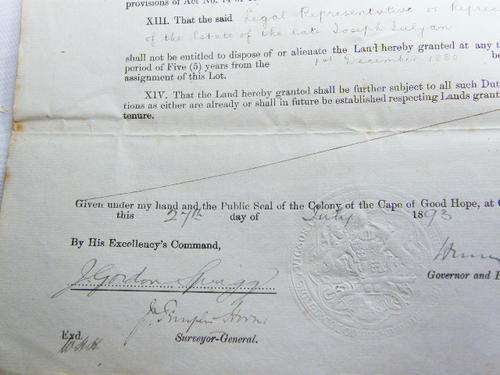 provisions of Act No.
XIII. That the said Legal Representative or
of the Estate of the late Joseph
shall not be entitled to dispose of or alienate the Land hereby granted at any
period of Five (5) years from the 1st December 1880
assignment of this Lot.
XIV. That the Land hereby granted shall be further subject to all such
tions as either are already or shall in future be established respecting Lands
tenure.
Given under my hand and the Public Seal of the Colony of the Cape of Good Hope, at
this 27th day of July 1893
By His Excellency's Command,
J. Gordon Sprigg
Governor and
Surveyor-General.
Exd.